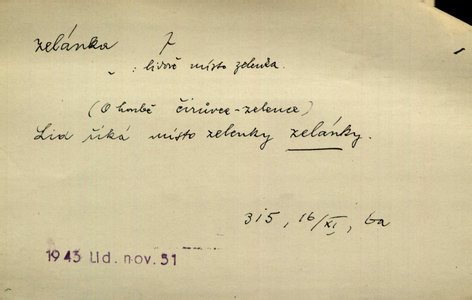 zelánka 7
: lidově místo zelenka.
(O houbě čirůvce-zelence)
Lid říká místo zelenky zelánky.
315, 16/XI, 6a
1943 Lid. nov. 51